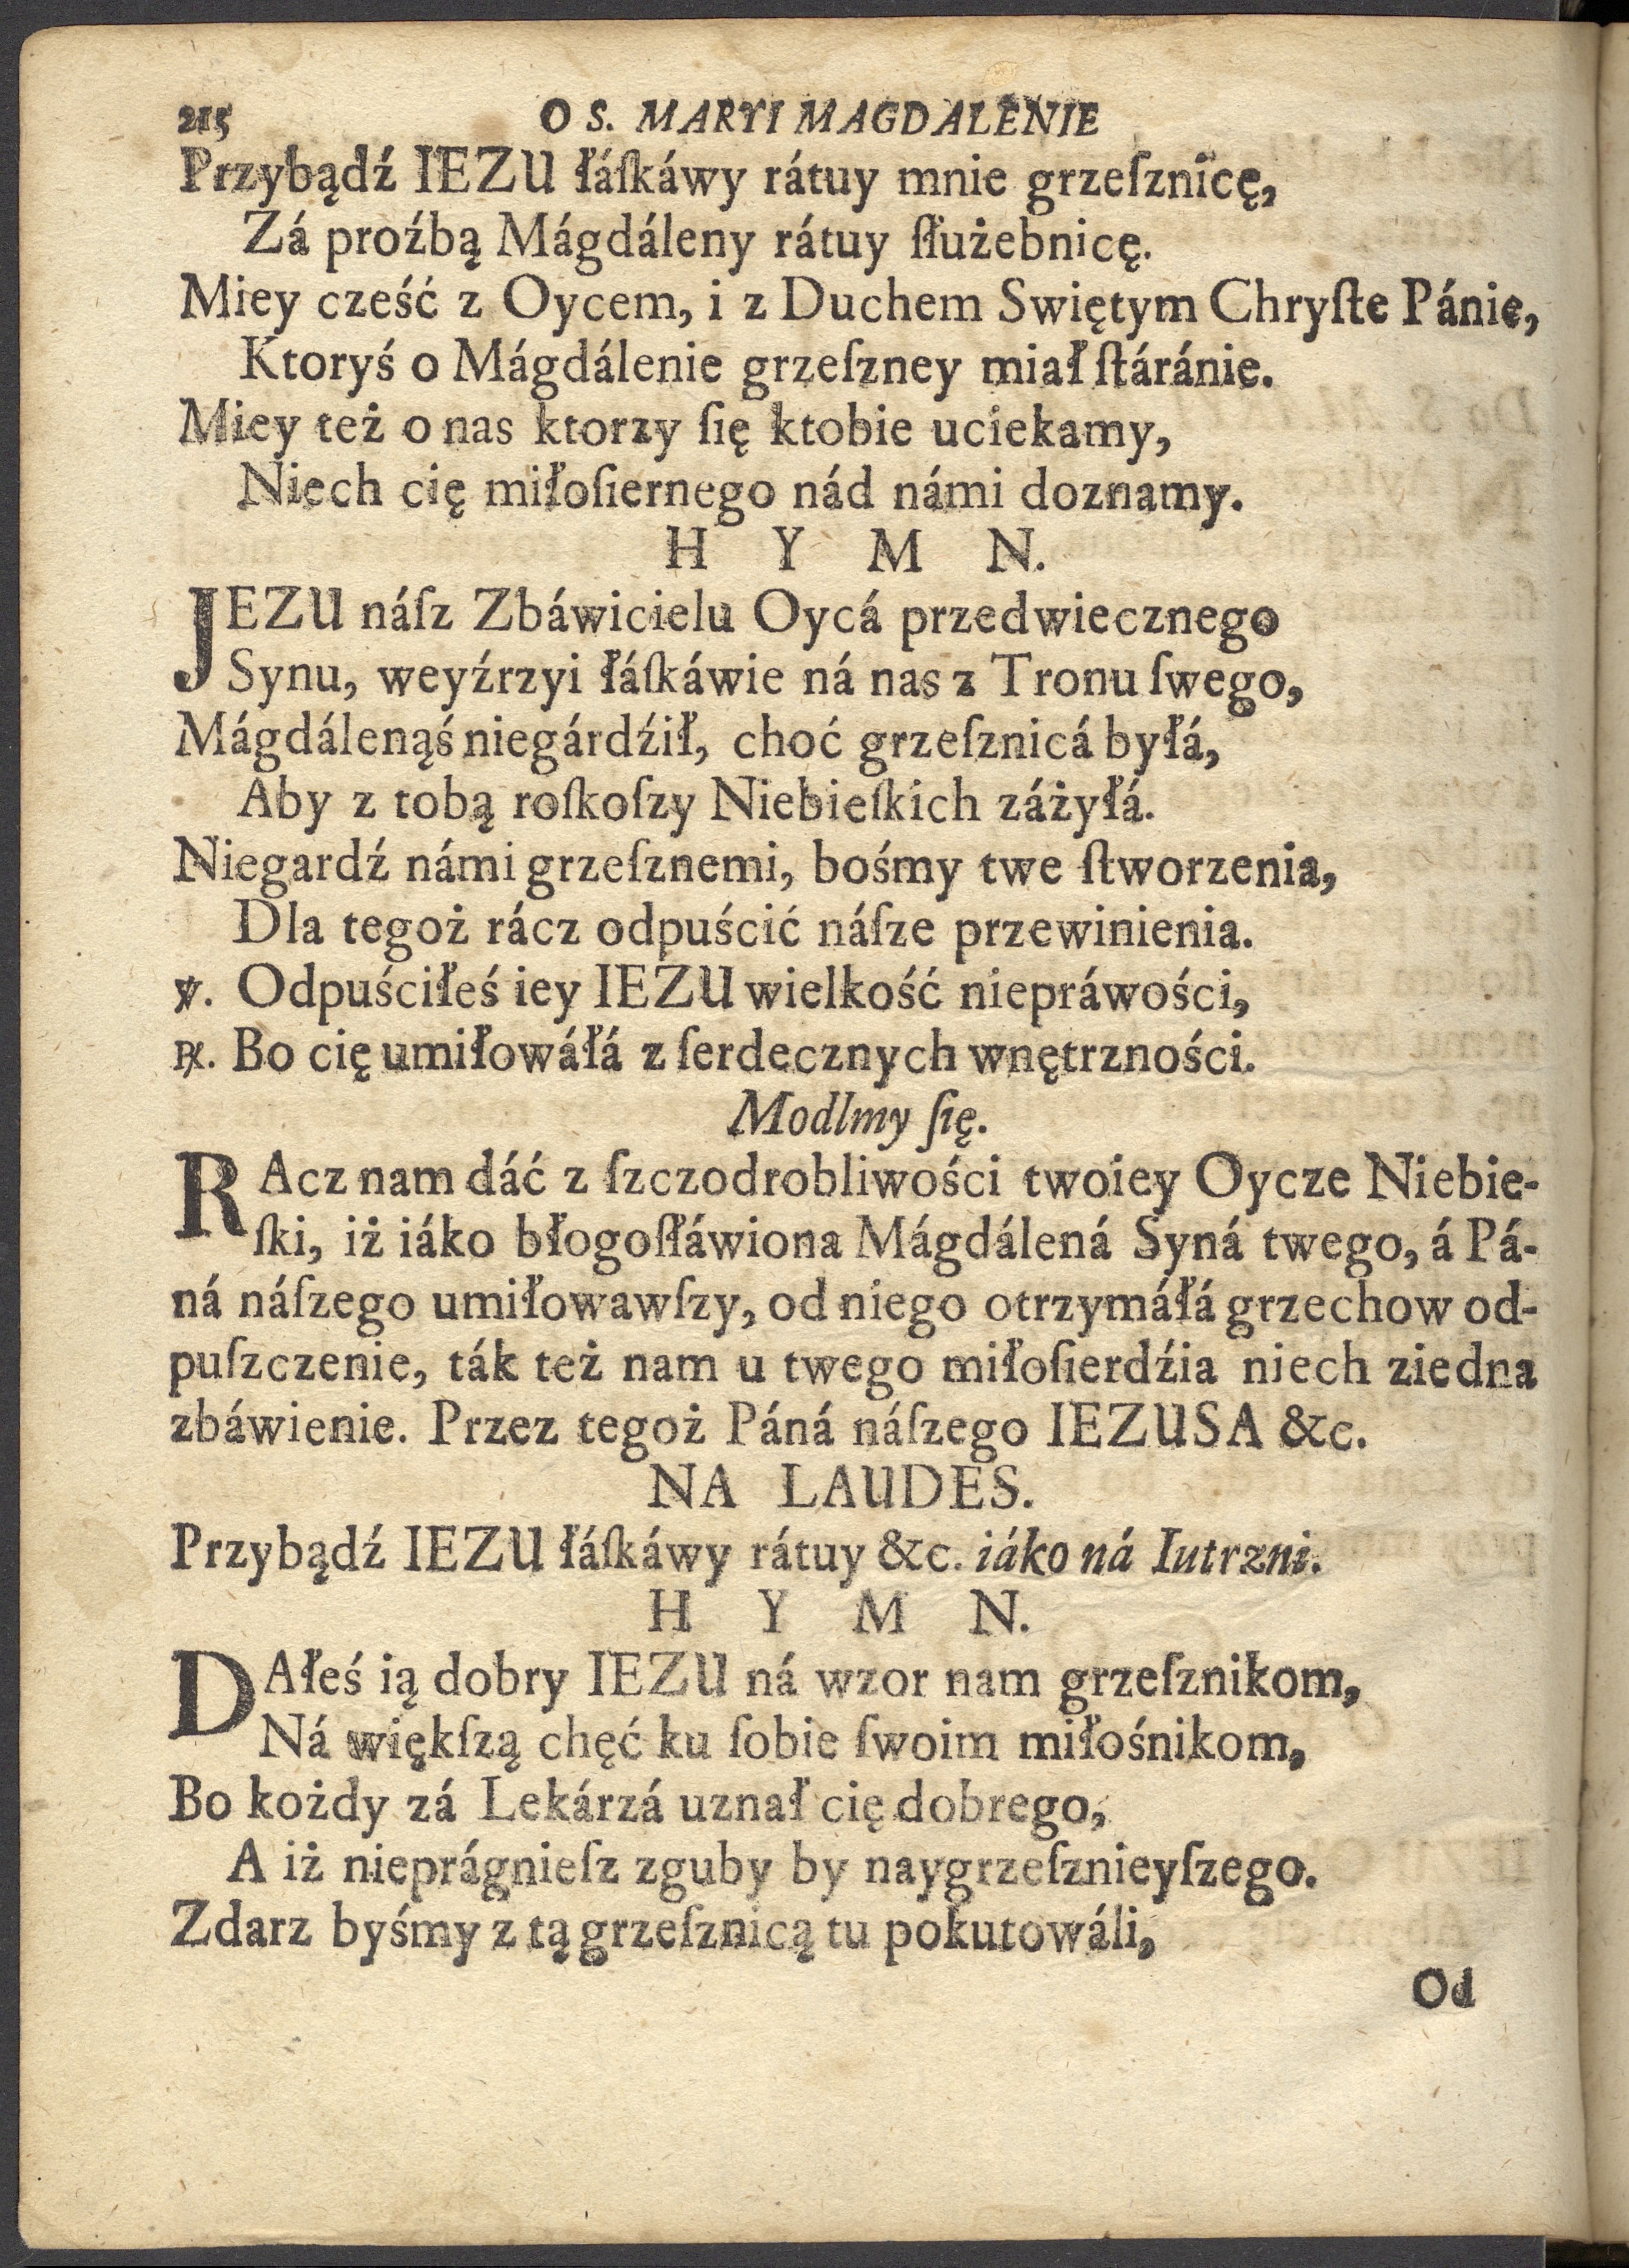 215 O S. MARYI MAGDALENIE
Przybądź IEZU łáſkáwy rátuy mnie grzeſznicę,
Zá proźbą Mágdáleny rátuy ſłużebnicę.
Miey cześć z Oycem, i z Duchem Swiętym Chryſte Pánie,
Ktoryś o Mágdálenie grzeſzney miał ſtáránie.
Miey też o nas ktorzy ſię ktobie uciekamy,
Niech cię miłoſiernego nád námi doznamy.
H Y M N.
JEZU náſz Zbáwicielu Oycá przedwiecznego
Synu, weyźrzyi łáſkáwie ná nas z Tronu ſwego,
Mágdálenąś niegárdźił, choć grzeſznicá byłá,
Aby z tobą roſkoſzy Niebieſkich záżyłá.
Niegardź námi grzeſznemi, bośmy twe ſtworzenia,
Dla tegoż rácz odpuścić náſze przewinienia.
℣. Odpuściłeś iey IEZU wielkość nieprάwości,
℟. Bo cię umiłowáłá z ſerdecznych wnętrzności.
Modlmy ſię.
RAcz nam dáć z ſzczodrobliwości twoiey Oycze Niebie-
ſki, iż iáko błogoſłáwiona Mágdálená Syná twego, á Pá-
ná náſzego umiłowawſzy, od niego otrzymáłá grzechow od-
puſzczenie, ták też nam u twego miłoſierdźia niech ziedna
zbáwienie. Przez tegoż Páná náſzego IEZUSA &c.
NA LAUDES.
Przybądź IEZU łáſkáwy rátuy &c. iáko ná Iutrzni.
H Y M N.
DAłeś ią dobry IEZU ná wzor nam grzeſznikom,
Ná więkſzą chęć ku ſobie ſwoim miłośnikom,
Bo kożdy zá Lekárzá uznał cię dobrego,
A iż nieprágnieſz zguby by naygrzeſznieyſzego.
Zdarz byśmy z tą grzeſznicą tu pokutowáli,
Od